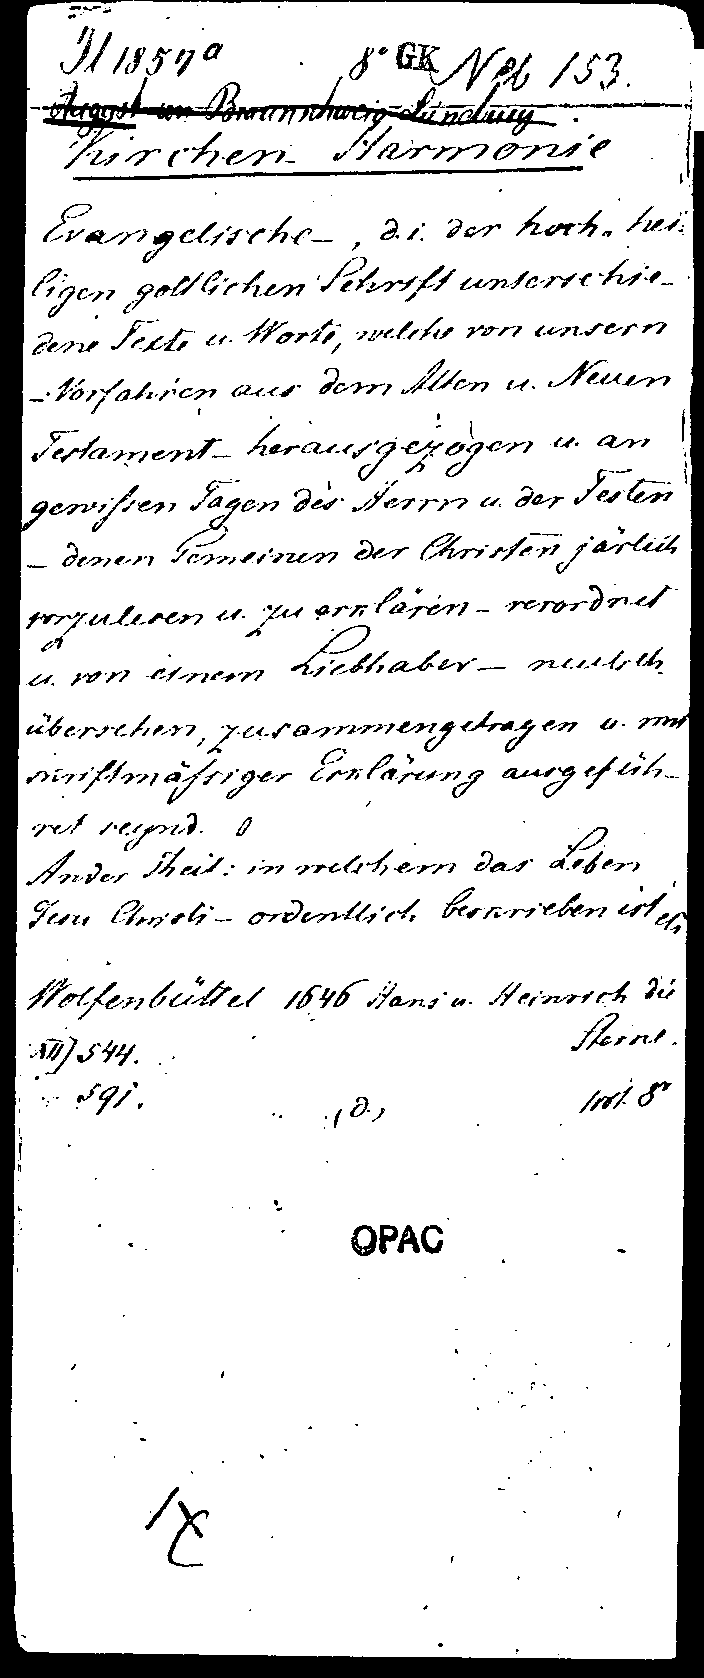 Jl 1857a 8° GK Neb 153.
August von Braunschweig-Lüneburg
Kirchen-Harmonie
Evangelische-, d.i. der hoch-hei-
ligen gottlichen Schrift unterschie-
dene Texte u. Worte, welche von unsern
-Vorfahren aus dem Alten u. Neuen
Testament- herausgezogen u. an
gewissen Tagen des Herrn u. der Festen
- denen Gemeinen der Christen järlich
vorzulesen u. zu erklären - verordnet
u. von einem Liebhaber - neulich
übersehen, zusammengetragen u. mit
schriftmässiger Erklärung ausgefüh-
ret seynd.
Ander Theil: in welchem das Leben
Jesu Christi - ordentlich beschrieben ist etc
Wolfenbüttel 1646 Hans u. Heinrich die
XII) 544. Sterne.
591. (d.) 8°
OPAC